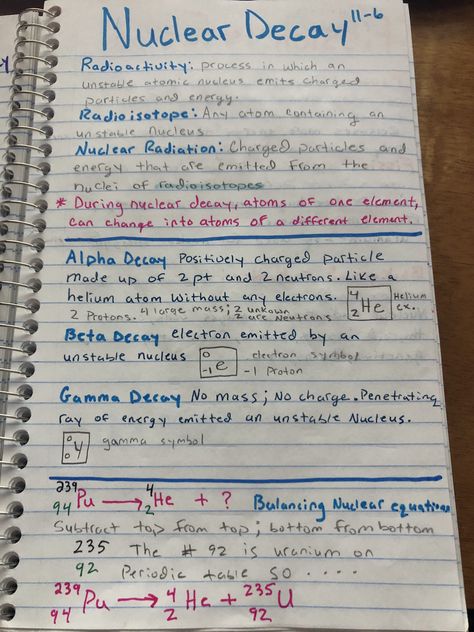 Nuclear Decay 11-6
Radioactivity: process in which an
unstable atomic nucleus emits charged
particles and energy.
Radioisotope: Any atom containing an
unstable nucleus
Nuclear Radiation: Charged particles and
energy that are emitted from the
nuclei of radioisotopes
* During nuclear decay, atoms of one element,
can change into atoms of a different element.
Alpha Decay Positively charged particle
made up of 2 pt and 2 neutrons. Like a
helium atom without any electrons. 4 2 He Helium ex.
2 Protons. 4 large mass; 2 unkown 2 are Neutrons
Beta Decay electron emitted by an
unstable nucleus 0 -1 e electron symbol
-1 Proton
Gamma Decay No mass; No charge. Penetrating
ray of energy emitted an unstable Nucleus.
0 0 γ gamma symbol
239 94 Pu → 4 2 He + ? Balancing Nuclear equations
Subtract top from top; bottom from bottom
235 The # 92 is uranium on
92 Periodic table so ....
239 94 Pu → 4 2 He + 235 92 U